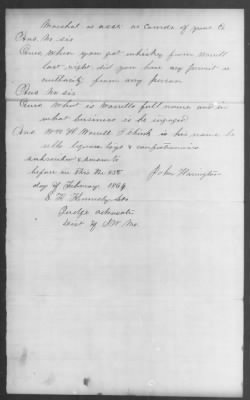 Marshal as asst. or Comdr of your Co
Ans. No sir
Ques. When you got whiskey from Worrell
last night did you have any permit or
authority from any person
Ans No sir
Ques. What is Worrells full name and in
what business is he engaged
Ans Wm H Worrell I think is his name he
sells liquors toys & confectionaries
subscribed & sworn to
before me this the 25th John Harrington
day of February 1864
S H Kennedy
Judge advocate
Dist of SW Mo.